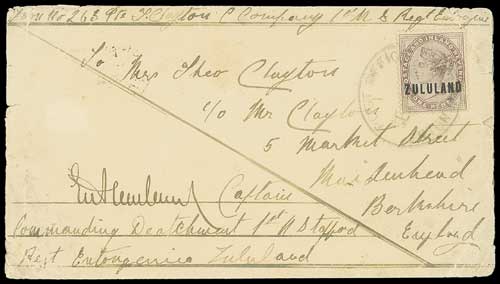 From No 268 Pte T. Clayton C Company 1st N. S. Regt Entongenie
To Mrs Theo Clayton
c/o Mr Clayton
5 Market Street
Maidenhead
Berkshire
England
ZULULAND
Captain
Commanding Deatchment 1st N Stafford
Regt Entongenie Zululand